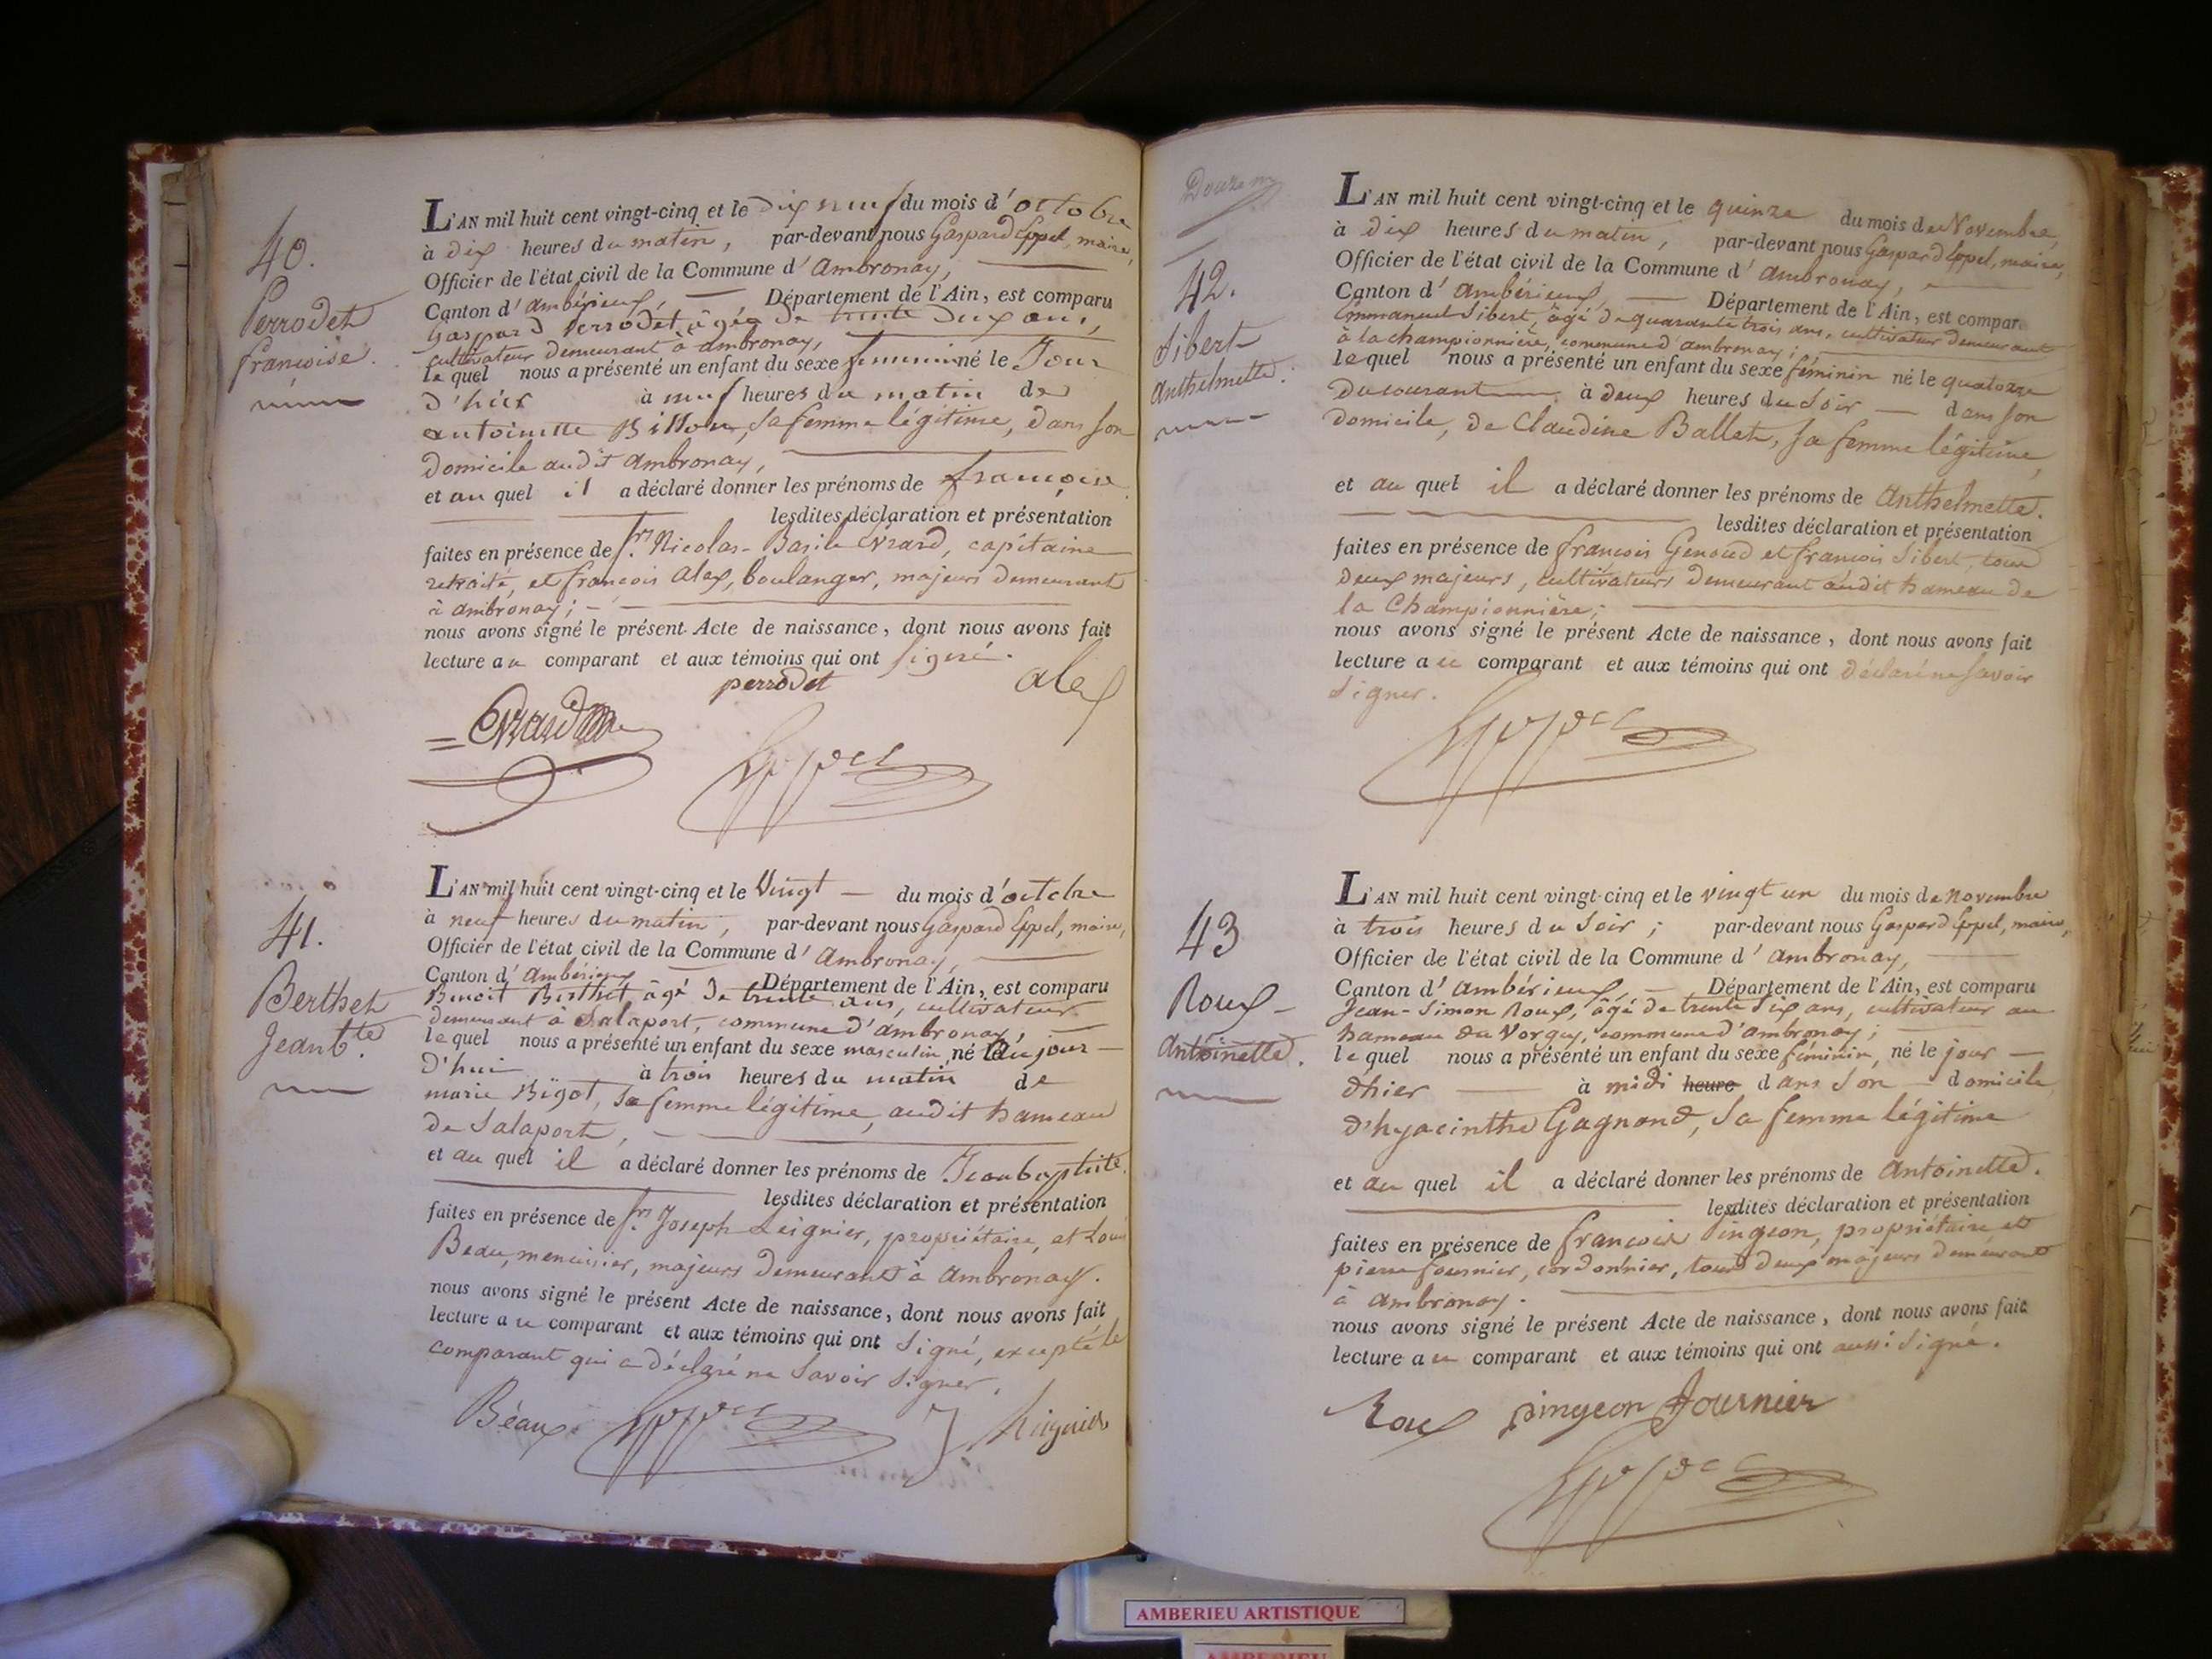 40.
Perrodet
françoise.
L'AN mil huit cent vingt-cinq et le dix neuf du mois d'octobre
à dix heures du matin, par-devant nous Gaspard Eppel, maire,
Officier de l'état civil de la Commune d'Ambronay,
Canton d'Ambérieux, Département de l'Ain, est comparu
Gaspard Perrodet, âgée de trente deux ans,
cultivateur demeurant à ambronay,
lequel nous a présenté un enfant du sexe feminin né le Jour
d'hier à neuf heures du matin de
antoinette Billon, sa femme légitime, dans son
domicile audit Ambronay,
et au quel il a déclaré donner les prénoms de françoise.
lesdites déclaration et présentation
faites en présence de Srs Nicolas-Basile Evrard, capitaine
retraité, et françois Alex, boulanger, majeurs demeurant
à ambronay;
nous avons signé le présent Acte de naissance, dont nous avons fait
lecture au comparant et aux témoins qui ont signé.
perrodet alex
Evrard Eppel
41.
Berthet
Jean bte.
L'AN mil huit cent vingt-cinq et le Vingt du mois d'octobre
à neuf heures du matin, par-devant nous Gaspard Eppel, maire,
Officier de l'état civil de la Commune d'Ambronay,
Canton d'Ambérieux Département de l'Ain, est comparu
Benoit Berthet, âgé de trente ans, cultivateur
demeurant à Salaport, commune d'ambronay,
lequel nous a présenté un enfant du sexe masculin né le jour
d'hui à trois heures du matin de
marie Bigot, sa femme légitime, audit hameau
de Salaport,
et au quel il a déclaré donner les prénoms de Jean baptiste.
lesdites déclaration et présentation
faites en présence de Srs Joseph Leignier, propriétaire, et Louis
Beau, menuisier, majeurs demeurant à Ambronay.
nous avons signé le présent Acte de naissance, dont nous avons fait
lecture au comparant et aux témoins qui ont signé, excepté le
comparant qui a déclaré ne savoir signer.
Béaux Eppel J Leignier
42.
Sibert
Anthelmette.
L'AN mil huit cent vingt-cinq et le quinze du mois de Novembre,
à dix heures du matin, par-devant nous Gaspard Eppel, maire,
Officier de l'état civil de la Commune d'Ambronay,
Canton d'Ambérieux, Département de l'Ain, est compar
Emmanuel Sibert, âgé de quarante trois ans, cultivateur demeurant
à la championnière, commune d'ambronay;
lequel nous a présenté un enfant du sexe féminin né le quatorze
du courant à deux heures du soir dans son
domicile, de Claudine Ballet, sa femme légitime,
et au quel il a déclaré donner les prénoms de Anthelmette.
lesdites déclaration et présentation
faites en présence de françois Genoud et françois Sibert, tous
deux majeurs, cultivateurs demeurant audit hameau de
la Championnière;
nous avons signé le présent Acte de naissance, dont nous avons fait
lecture au comparant et aux témoins qui ont déclaré ne savoir
signer.
Eppel
43
Roux
Antoinette.
L'AN mil huit cent vingt-cinq et le vingt un du mois de novembre
à trois heures du soir; par-devant nous Gaspard Eppel, maire,
Officier de l'état civil de la Commune d'Ambronay,
Canton d'Ambérieux, Département de l'Ain, est comparu
Jean-Simon Roux, âgé de trente six ans, cultivateur au
hameau du Vorgey, commune d'ambronay;
lequel nous a présenté un enfant du sexe féminin, né le jour
dhier à midi heure dans son domicile
d'hyacinthe Gagnond, sa femme légitime
et au quel il a déclaré donner les prénoms de Antoinette.
lesdites déclaration et présentation
faites en présence de françois Pingeon, propriétaire et
pierre fournier, cordonnier, tous deux majeurs demeurant
à Ambronay.
nous avons signé le présent Acte de naissance, dont nous avons fait
lecture au comparant et aux témoins qui ont aussi signé.
Roux pingeon fournier
Eppel
AMBERIEU ARTISTIQUE
AMBERIEU